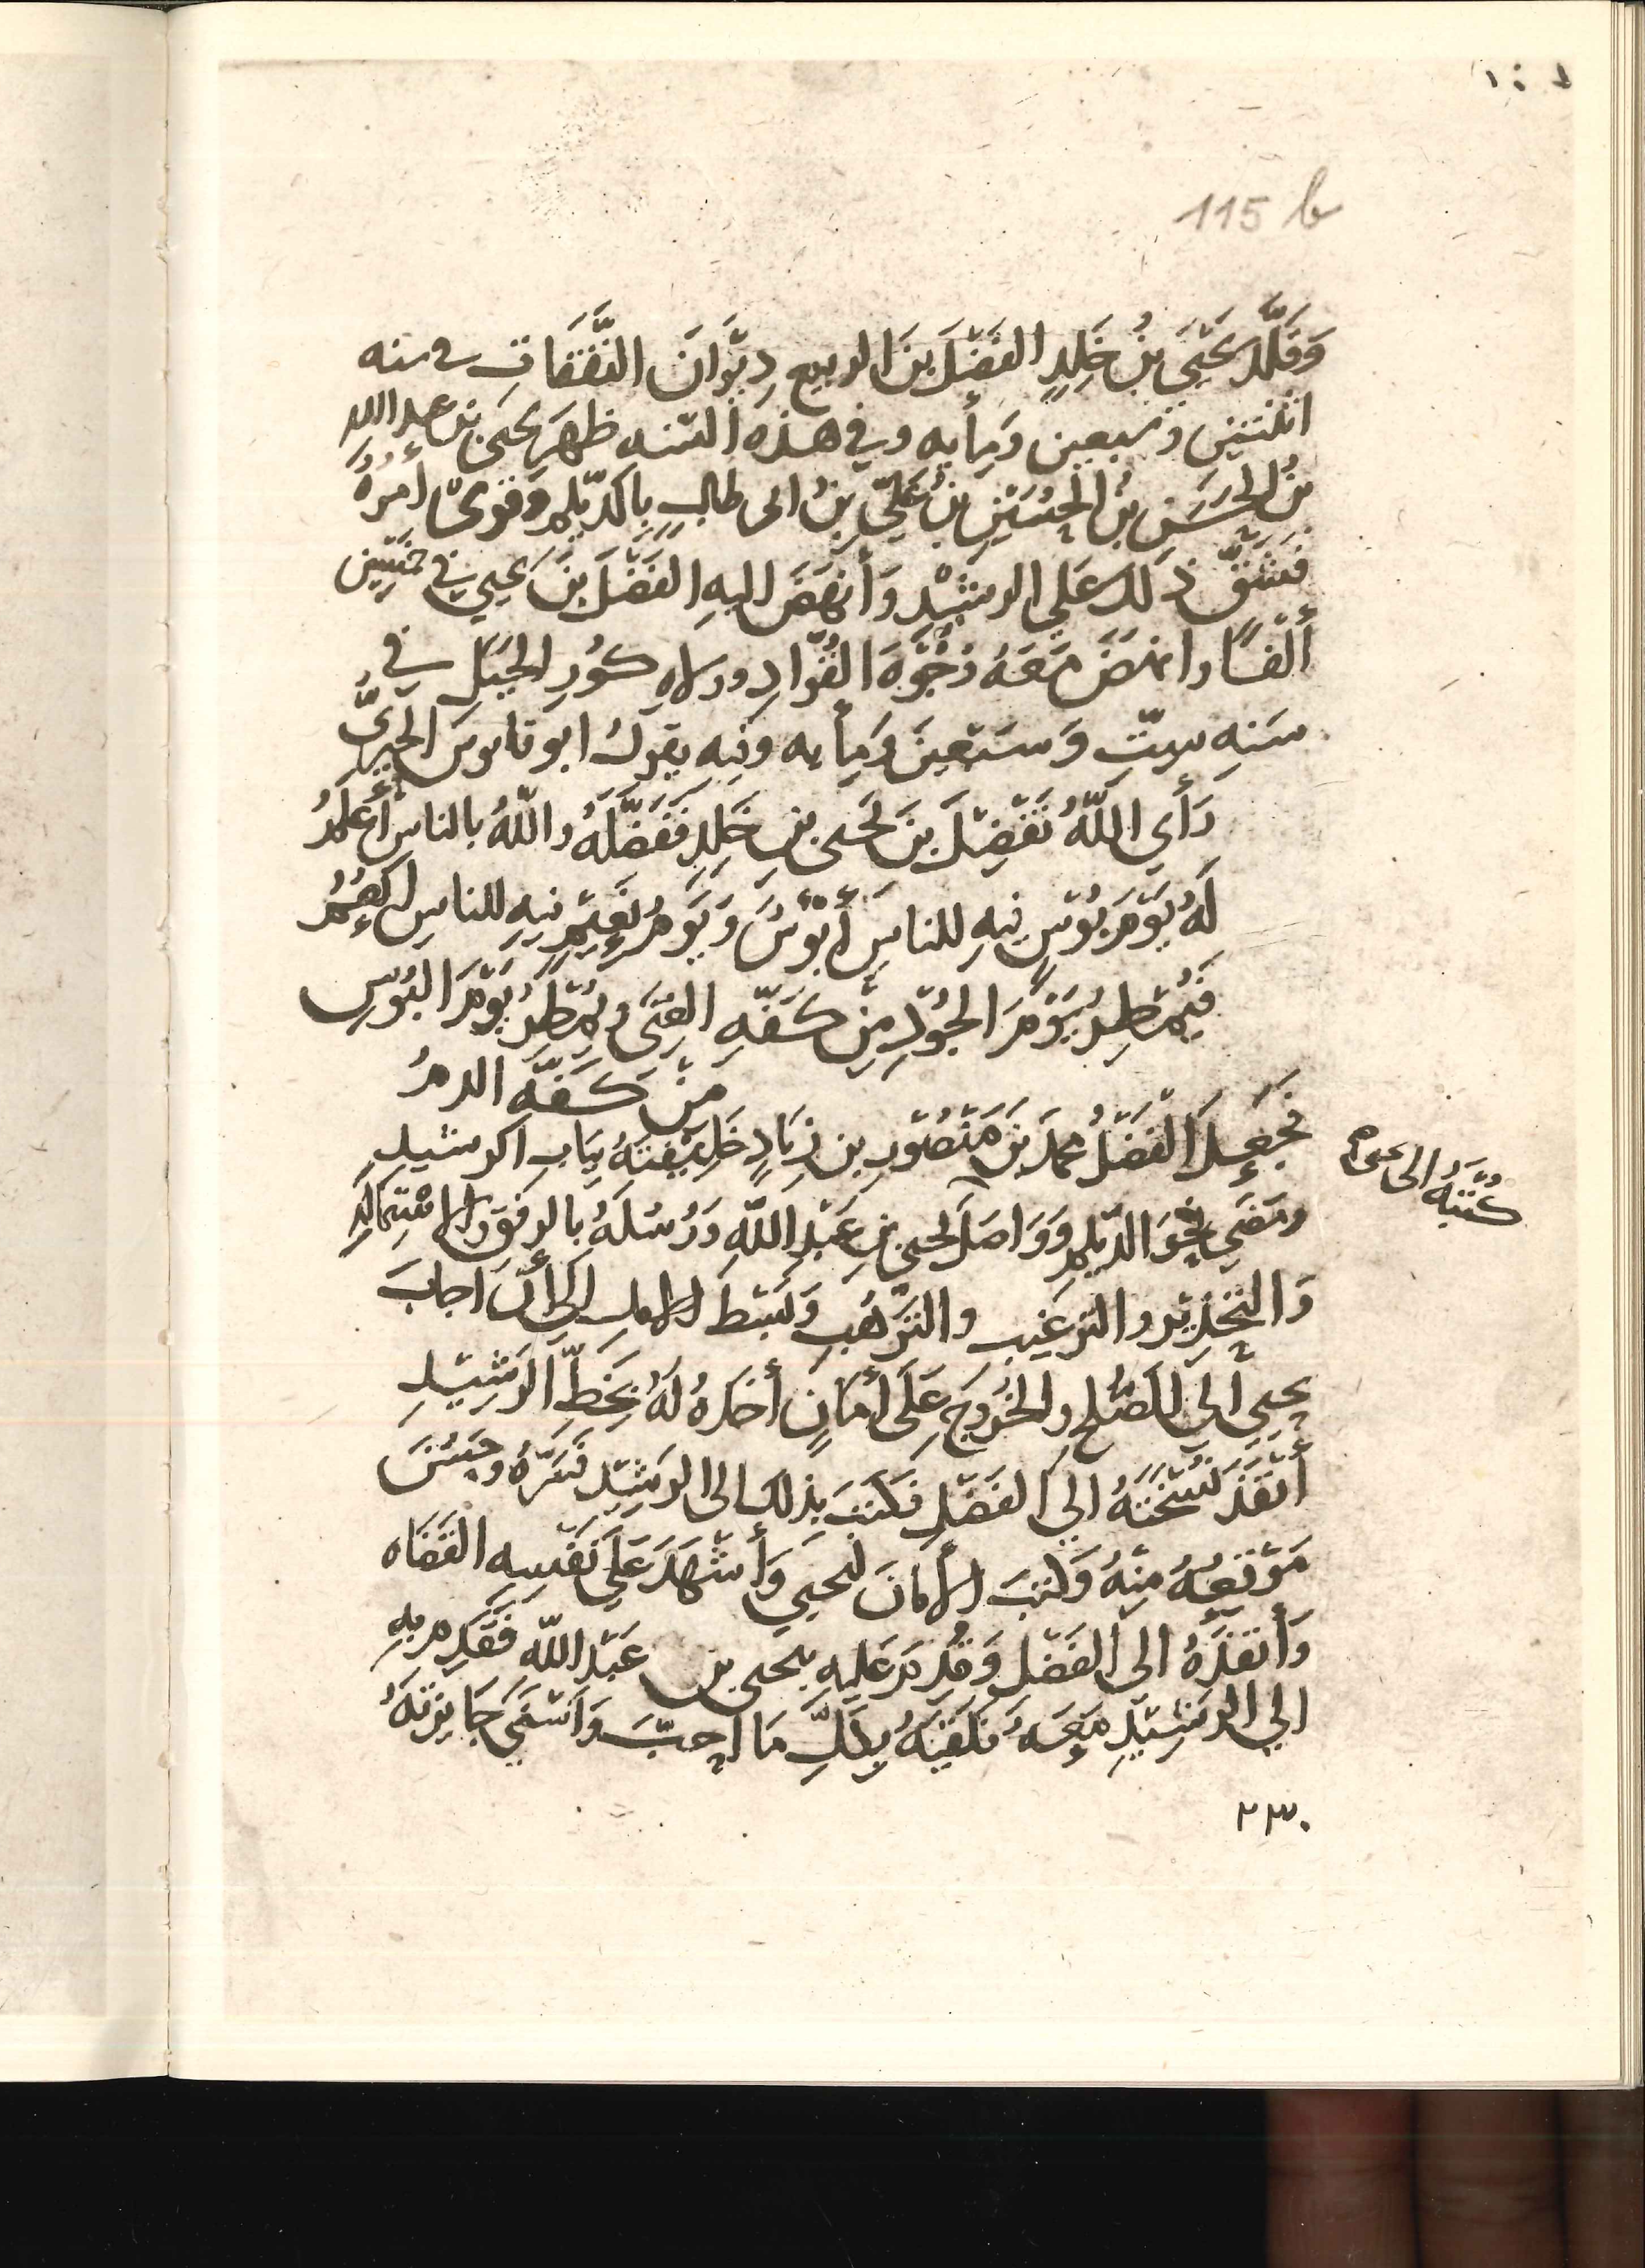 115 b
وَقَلَّدَ يَحْيَى بْنُ خَلِدٍ الفَضْلَ بنَ الربيع دِيْوَانَ النَّفَقَاتِ في سنه
اثنتين وسَبعين ومِأيه وفي هذه السّنه ظَهَرَ يحيى بن عبد الله
بنُ الحَسَنِ بنُ الحُسَيْنِ بنُ عَلِيّ بنُ ابى طالبٍ بِالدّيلمِ وَقوىَ أمرُهُ
فشَقَّ ذلك عَلى الرشيْدِ وَأنهَضَ اليهِ الفَضْلَ بنَ يحيى في خمسين
ألْفًا وانهضَ مَعَهُ وُجُوْهَ القُوّادِ وولاه كوُر الجَبَلِ في
سَنهِ ستّ وَسبعينَ ومِأيه وفيه يقولُ ابو قابوسَ الحِيرِيُّ
رَأي اللّهُ تَفْضِيْلَ بنَ يحيى بنِ خَلِدٍ فَفَضَّلَهُ واللّهُ بالناسِ أعْلَمُ
لَهُ يَوْمَ بُوْسٍ فيهِ للناسِ أبْوْسُ وَيَوْمُ نَعِيْمٍ فيهِ للناسِ انعُمُ
فيُمْطِرُ يَوْمَ الجُوْدِ مِنْ كَفّهِ الغِنَى ويُمْطِرُ يَوْمَ البُوْسِ
مِنْ كَفّهِ الدمُ
فجَعَلَ الفَضْلُ محمدَ بنَ مَنْصُوْرِ بن زِيَادٍ خَلِيْفَتَهُ بِبَابِ الرشيدِ
ومَضَي نحْوَ الدّيلمِ وَوَاصَلَ يحيى بنِ عَبْدِ اللّهِ وَرُسُلَهُ بِالرِفْقِ والاسْتِمَالَهِ
كُتُبَهُ الى
وَالتحْذِيْرِ والترغيبِ والترْهُبِ وَبَسْط الامل الي أنْ اجابَ
يحيى إلي الصُلحِ والخُرُوجِ عَلَى أمَانٍ أخذهُ لَهُ بِخَطِّ الرَشِيْدِ
أنْفَذَ نُسْخَتَهُ الي الفَضْلِ فكَتبَ بذلك الى الرَشِيْدِ فسَرّهُ وحَسُنَ
مَوْقعُهُ مِنْهُ وَكتبَ الأمَانَ ليحيي وَأشْهَدَ عَلي نَفْسِهِ القُضَاه
وَأنفَذَهُ الى الفَضْلِ وَقَدِمَ عَليهِ يحيى بن عَبْدِ اللّه فَقَدِم بِهِ
الي الرَشِيْدِ مَعَهُ فلَقيَهُ بِكُلِّ مَا احَبَّ وَاَسْنَي جَايزتهُ
٢٣٠